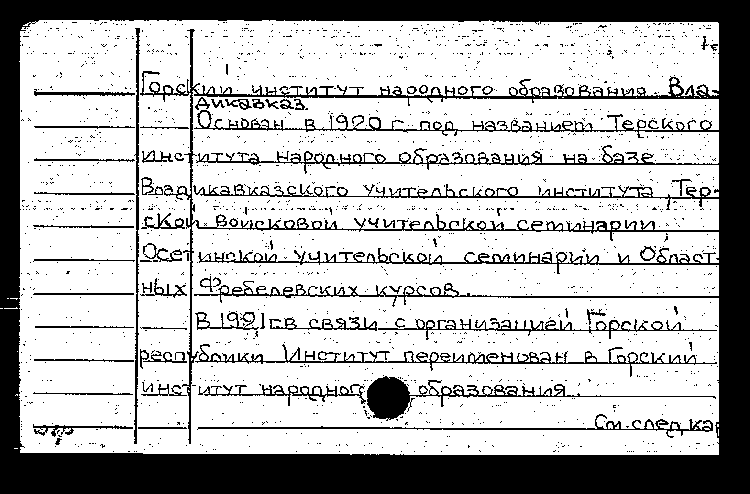 Горский институт народного образования. Вла-
дикавказ.
Основан в 1920 г. под названием Терского
института народного образования на базе
Владикавказского учительского института, Тер-
ской войсковой учительской семинарии,
Осетинской учительской семинарии и Област-
ных Фребелевских курсов.
В 1921 г. в связи с организацией Горской
республики Институт переименован в Горский
институт народного образования.
См. след. кар